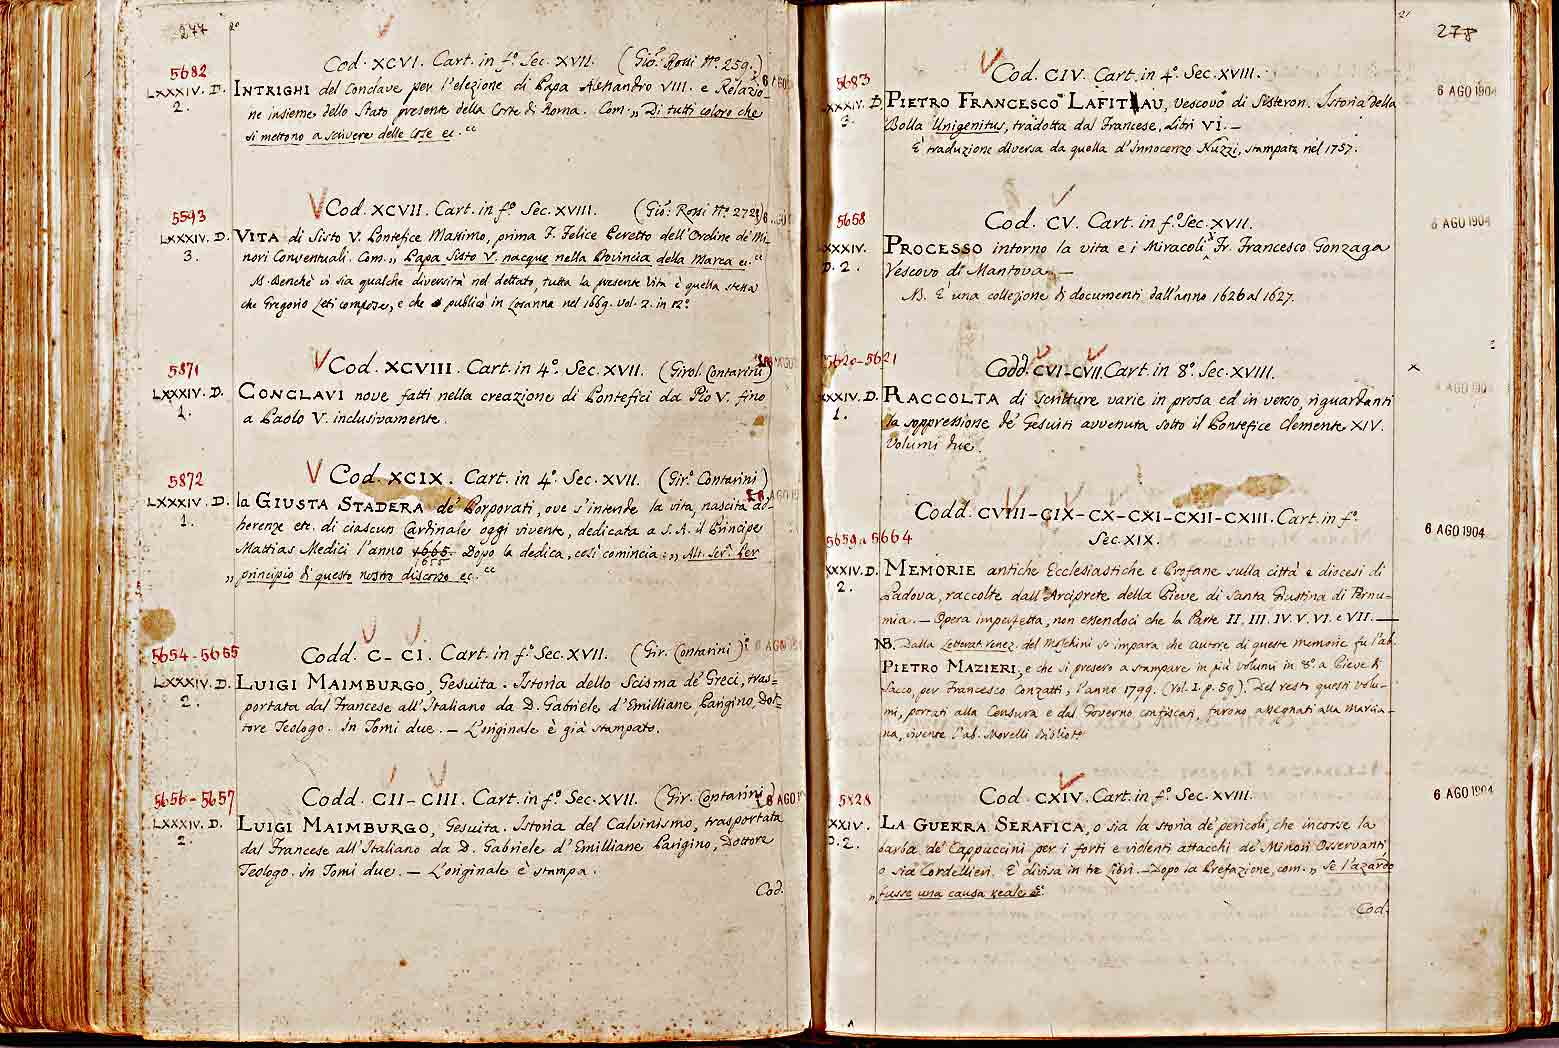 277
2º
Cod. XCVI. Cart. in fº. Sec. XVII. (Gio: Rossi Nº. 259.)
5682
LXXXIV. D.
2.
INTRIGHI del Conclave per l'elezione di Papa Alessandro VIII. e Relazio-
ne insieme dello Stato presente della Corte di Roma. Com. „ Di tutti coloro che
si mettono a scrivere delle Cose ec. “
Cod. XCVII. Cart. in fº. Sec. XVIII. (Gio: Rossi Nº. 272.)
5593
LXXXIV. D.
3.
VITA di Sisto V. Pontefice Massimo, prima F. Felice Peretto dell'Ordine de' Mi-
nori Conventuali. Com. „ Papa Sisto V. nacque nella Provincia della Marca ec. “
N. Benchè vi sia qualche diversità nel dettato, tutta la presente Vita è quella stessa
che Gregorio Leti compose, e che pubblicò in Losanna nel 1669. vol. 2. in 12º
Cod. XCVIII. Cart. in 4º. Sec. XVII. (Girol. Contarini)
5871
LXXXIV. D.
1.
CONCLAVI nove fatti nella creazione di Pontefici da Pio V. fino
a Paolo V. inclusivamente.
Cod. XCIX. Cart. in 4º. Sec. XVII. (Girº. Contarini)
5872
LXXXIV. D.
1.
la GIUSTA STADERA de' Porporati, ove s'intende la vita, nascita ad-
herenze etc. di ciascun Cardinale oggi vivente, dedicata a S. A. il Principe
Mattias Medici l'anno 1665. Dopo la dedica, così comincia: „ Alt. Ser. Per
1655
„ principio di questo nostro discorso ec. “
Codd. C - CI. Cart. in fº. Sec. XVII. (Gir. Contarini)
5654 - 5655
LXXXIV. D.
2.
LUIGI MAIMBURGO, Gesuita. Istoria dello Scisma de' Greci, tras=
portata dal Francese all'Italiano da D. Gabriele d'Emilliane, Parigino, Dot-
tore Teologo. In Tomi due. — L'originale è già stampato.
Codd. CII - CIII. Cart. in fº. Sec. XVII. (Gir. Contarini)
5656 - 5657
LXXXIV. D.
2.
LUIGI MAIMBURGO, Gesuita. Istoria del Calvinismo, trasportata
dal Francese all'Italiano da D. Gabriele d'Emilliane Parigino, Dottore
Teologo. In Tomi due. — L'originale è stampa.
Cod.
278
Cod. CIV. Cart. in 4º. Sec. XVIII.
5683
XXXIV. D.
3.
6 AGO 1904
PIETRO FRANCESCO LAFITAU, Vescovo di Sisteron. Istoria della
Bolla Unigenitus, tradotta dal Francese, Libri VI. —
E' traduzione diversa da quella d'Innocenzo Nuzzi, stampata nel 1757.
Cod. CV. Cart. in fº. Sec. XVII.
5658
XXXIV.
D. 2.
6 AGO 1904
PROCESSO intorno la vita e i Miracoli Fr. Francesco Gonzaga
Vescovo di Mantova. —
N. E' una collezione di documenti dall'anno 1626 al 1627.
Codd. CVI - CVII. Cart. in 8º. Sec. XVIII.
5620-5621
XXXIV. D.
1.
RACCOLTA di scritture varie in prosa ed in verso, riguardanti
la soppressione de' Gesuiti avvenuta sotto il Pontefice Clemente XIV.
Volumi due.
Codd. CVIII - CIX - CX - CXI - CXII - CXIII. Cart. in fº.
Sec. XIX.
5659 a 5664
XXXIV. D.
2.
6 AGO 1904
MEMORIE antiche Ecclesiastiche e Profane sulla città e diocesi di
Padova, raccolte dall'Arciprete della Pieve di Santa Giustina di Pernu-
mia. — Opera imperfetta, non essendoci che la Parte II. III. IV. V. VI. e VII. —
NB. Dalla Letterat. Venez. del Moschini so impara che autore di queste memorie fu l'ab.
PIETRO MAZIERI, e che si presero a stampare in più volumi in 8º. a Pieve di
Sacco, per Francesco Conzatti, l'anno 1799. (Vol. I. p. 59). Del resto questi volu-
mi, portati alla Censura e dal Governo confiscati, furono assegnati alla Marcia-
na, vivente l'ab. Morelli Bibliotº
Cod. CXIV. Cart. in fº. Sec. XVIII.
5828
XXIV.
D. 2.
6 AGO 1904
LA GUERRA SERAFICA, o sia la storia de' pericoli, che incorse la
barba de' Cappuccini per i forti e violenti attacchi de' Minori Osservanti
o sia Cordellieri. E' divisa in tre Libri. — Dopo la Prefazione, com. „ Se l'azardo
„ fusse una causa reale
Cod.